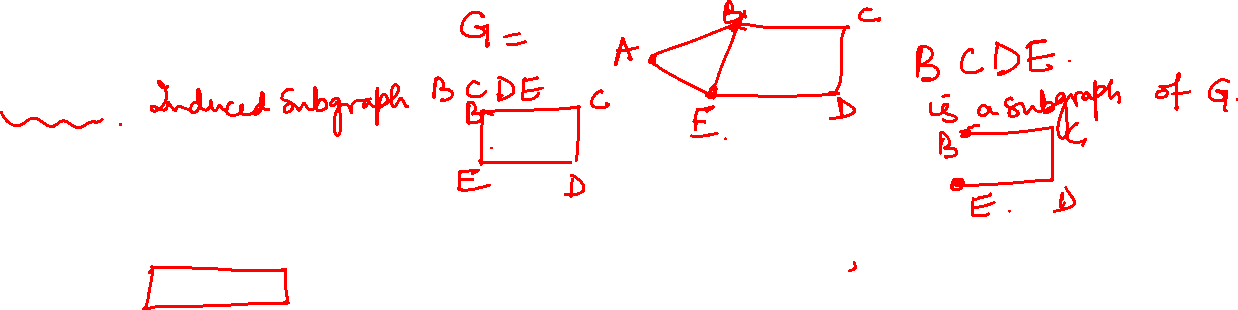 G =
A B C D E
Induced Subgraph B C D E
B C D E
B C D E.
is a subgraph of G.
B C D E.